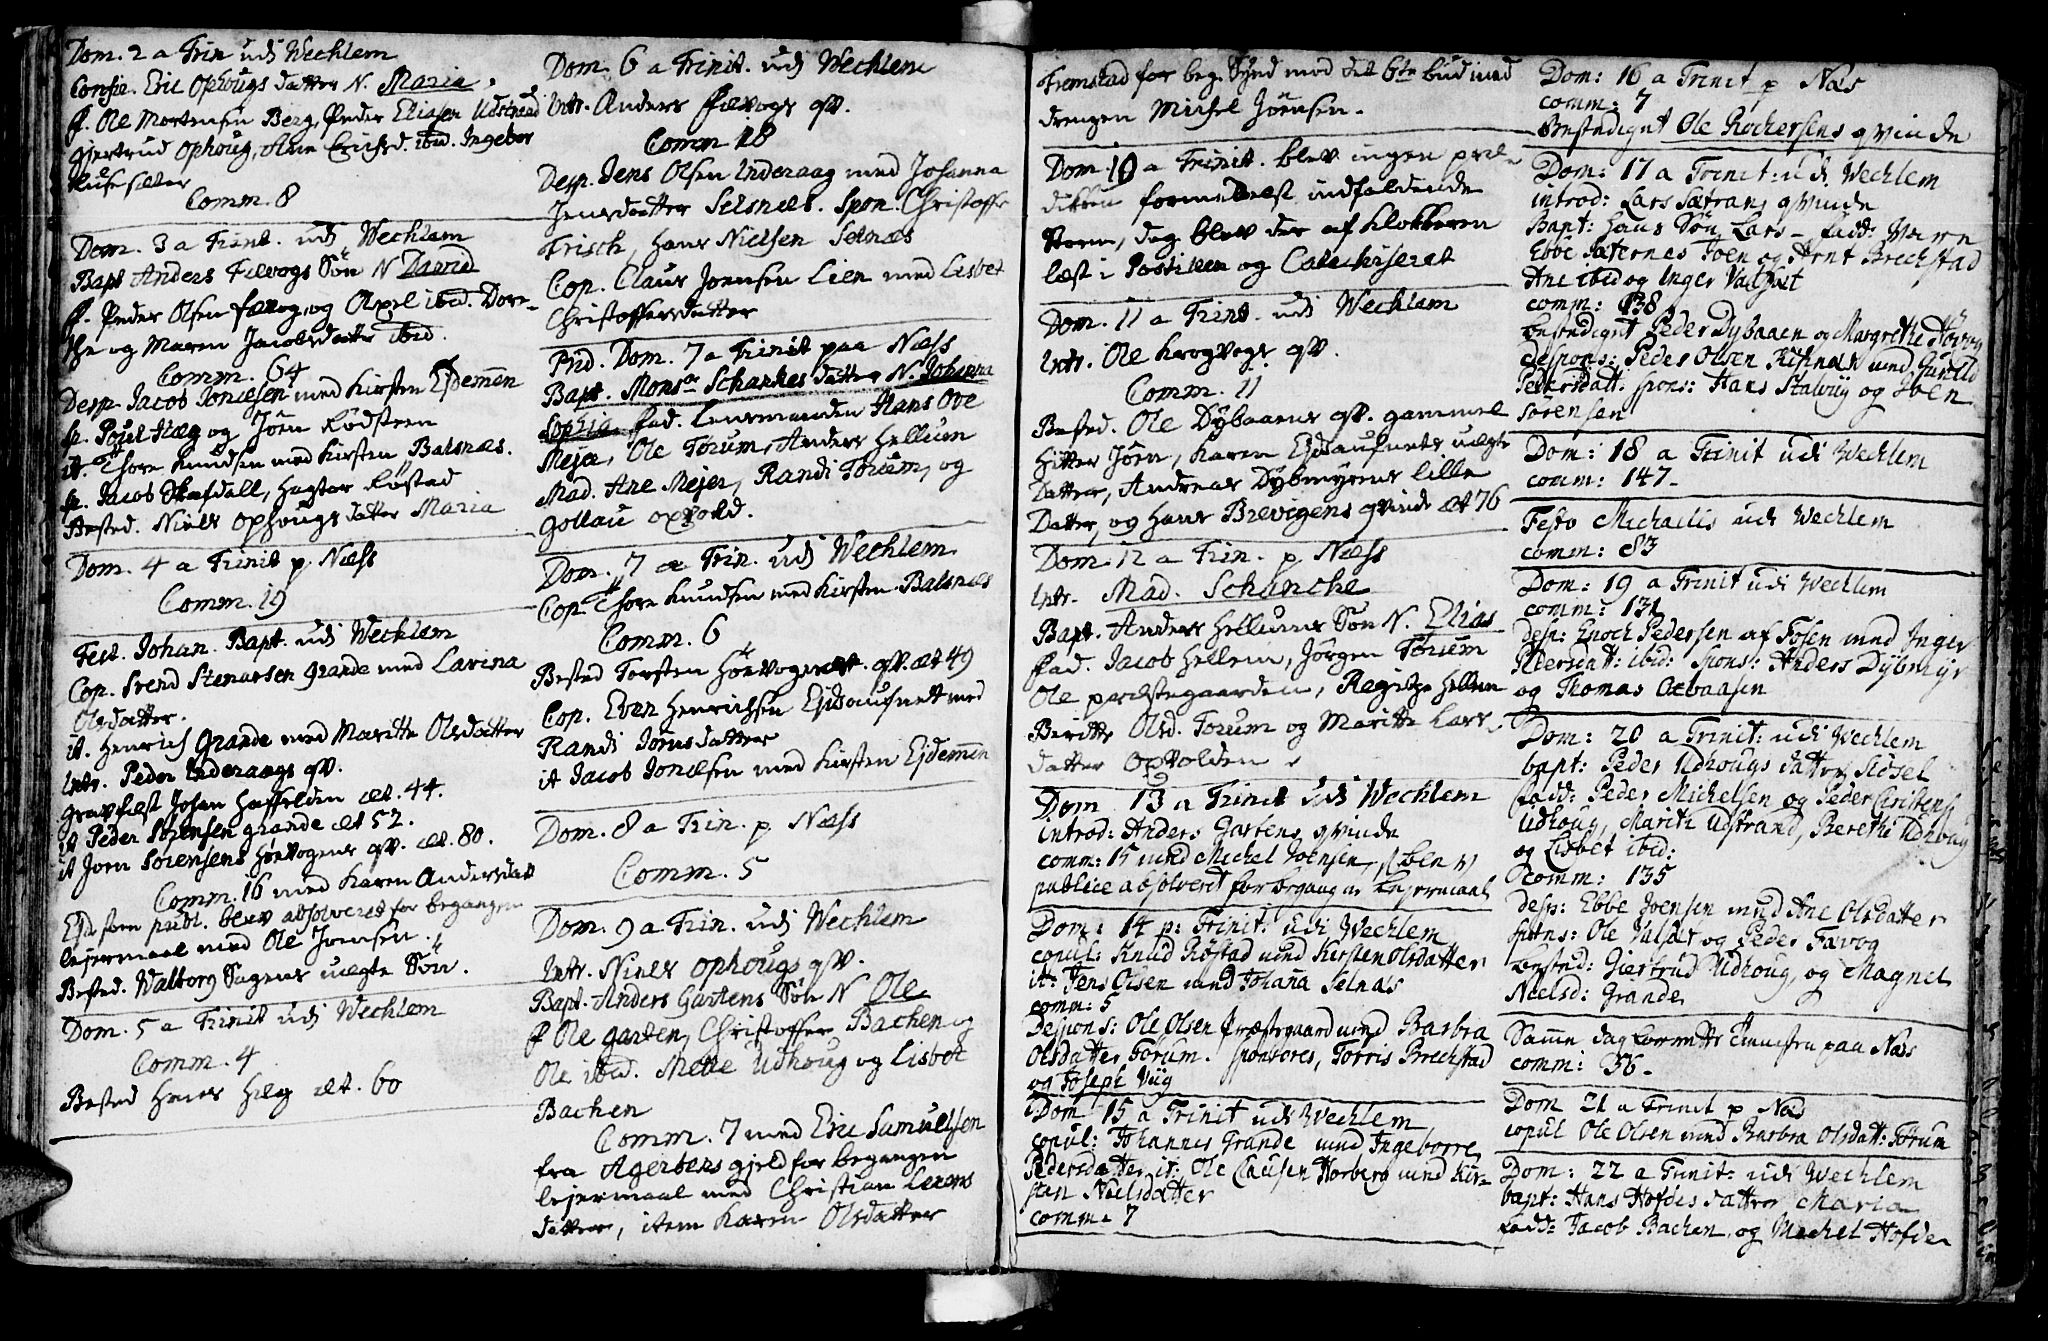 Dom. 2 a Trin udi Wechlem
Confir. Eric Ophougs datter N. Maria,
f. Ole Mortensen Berg, Peder Eliasen Udstrand
Giertrud Ophoug, Ane Erichsd. ibid. Ingebor
Comm. 8
Dom. 3 a Trinit. udi Wechlem
Bapt Anders Fævogs Søn N David
f. Peder Olsen fævog, og Axel ibid. Dore-
the og Maren Jacobsdatter ibid.
Comm. 64
Desp. Jacob Jonæsen med Kirsten Ejdemen
sp. Poul Hæg og Jørn Rødsteen
it. Thore Knudsen med Kirsten Balsnæs.
sp. Jacob Skafdall, Røstad
Bested. Niels Ophougs datter Maria
Dom. 4 a Trinit p. Næss
Comm. 19
Fest. Johan. Bapt. udi Wechlem
Cop. Svend Stenarsen Grande med Lavina
Olsdatter.
it. Henrich Grande med Maritte Olsdatter
Intr. Peder Inderaags qv.
Gravfæst Johan Haffelden æt. 44.
it Peder Sørensen grande æt 52.
it Jørn Sørensens Høevogens qv. æt. 80.
Comm. 16 med Karen Andersdatt
Ejd som publ. blev absolveret for begangen
lejermaal med Ole Joensen.
Bested. Walborg Sagens uægte Søn.
Dom. 5 a Trinit udi Wechlem
Comm. 4
Bested Hæg æt. 60
Dom. 6 a Trinit. udi Wechlem
Intr. Anders Fævogs qv.
Comm. 18
Desp. Jens Olsen Inderaag med Johanna
Jensdatter Selsnæs. Spon. Christoffr
Frisch, Hans Nielsen Selnæs
Cop. Claus Joensen Lien med Lisbet
Christoffersdatter
Prid. Dom. 7 a Trinit paa Næss
Bapt. Monsr Schankes datter N. Johanna
Sophia fad. Lensmanden Hans Ove
Mejer, Ole Tørum, Anders Hellum
Mad. Ane Mejer, Randi Tørum, og
Gollau opvold.
Dom. 7 a Trin. udi Wechlem
Cop. Thore Knudsen med Kirsten Balsnæs
Comm. 6
Bested Torsten Høevogens qv. æt 49
Cop. Even Henrichsen Ejdsaufnet med
Randi Jørnsdatter
it Jacob Jonæsen med Kirsten Ejdemen
Dom. 8 a Trin. p. Næss
Comm. 5
Dom. 9 a Trin. udi Wechlem
Intr. Niels Ophougs qv.
Bapt. Anders Gartens Søn N Ole
f Ole Garten, Christoffer Bachen og
Ole ibid. Mette Udhoug og Lisbet
Bachen
Comm. 7 med Eric Samuelsen
fra Agerbers gield for begangen
lejermaal med Christian Lerens
datter, item Karen Olsdatter
Fremstad for beg. Synd mod det 6te bud med
drengen Michel Jørnsen.
Dom. 10 a Trinit. blev ingen præ-
diken formedelst indfaldende
Storm, dog blev der af Klokkeren
læst i Postillen og Catechiseret
Dom. 11 a Trinit. udi Wechlem
Intr. Ole Krogvogs qv.
Comm. 11
Bested. Ole Dybaaens qv. gammel
Hitter Jørn, Karen Ejdsaufnets uægte
Datter, Andreas Dybmyrens lille
Datter, og Hans Brevigens qvinde æt 76
Dom. 12 a Trin. p. Næss
Intr. Mad. Schancke
Bapt. Anders Hellums Søn N. Elias
Fad. Jacob Hellem, Jørgen Tørum
Ole prestegaarden, Regitze Hellem
Beritte Olsd. Torum og Maritte Lars
datter Opvolden
Dom 13 a Trinit udi Wechlem
introd: Anders Gartens qvinde
comm: 15 med Michel Joensen,
publice absolveret for begangne Lejermaal
Dom: 14 p: Trinit: udi Wechlem
copul: Knud Røstad med Kirsten Olsdatter
it: Jens Olsen med Johana Selnæs
comm: 5
Despons: Ole Olsen Præstegaard med Barbra
Olsdatter Tørum. Sponsores, Torris Brechstad
og Joseph Viig
Dom 15 a Trinit udi Wechlem
copul: Johannes Grande med Ingeborre
Pedersdatter it: Ole Clausen Horberg med Kir-
sten Nielsdatter
comm. 7
Dom: 16 a Trinit p Næs
comm: 7
Bestediget Ole Rochersens qvinde
Dom: 17 a Trinit: udi Wechlem
introd: Lars Sætrans qvinde
Bapt: Hans Søn Lars - fadd: Væren
Ebbe Sæternes Joen og Arnt Brechstad
Ane ibid og Inger Valset
comm: 138
bestediget Peder Dybaaen og Margrethe
despons: Peder Olsen Risnæs med Gurild
Pedersdatt. spons: Hans Stalviig og Iben
Sørensen
Dom: 18 a Trinit udi Wechlem
comm: 147.
Festo Michaelis udi Wechlem
comm: 83
Dom: 19 a Trinit udi Wechlem
comm: 131
desp: Enoch Pedersen af Fosen med Inger
Pedersdatt: ibid: Spons: Anders Dybmyr
og Thomas Oxbaasen
Dom: 20 a Trinit: udi Wechlem
bapt: Peder Udhougs datter Sidsel
fadd: Peder Michelsen og Peder Christens
Udhoug, Marith Ustrand, Berethe Udhoug
og Lisbet ibid:
comm: 135
desp: Ebbe Joensen med Ane Olsdatter
spons: Ole Valset og Peder Favog
bested: Giertrud Udhoug, og Magnel
Neelsd: Grande
Samme dag forrette Tienisten paa Næs
comm: 36.
Dom 21 a Trinit p Næs
copul Ole Olsen med Barbra Olsdatt: Tørum
Dom: 22 a Trinit: udi Wechlem
bapt: Hans Hofdes datter Maria
fadd: Jacob Bachen, og Mechel Hofde